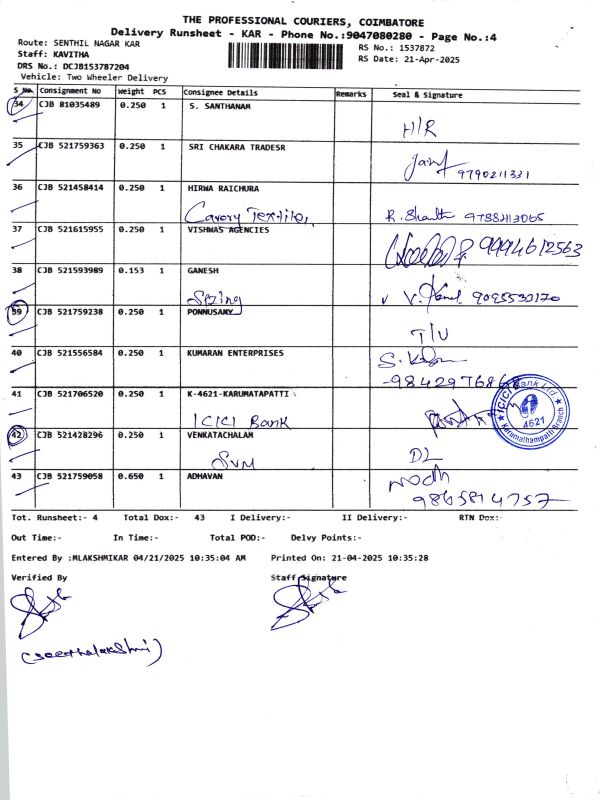 THE PROFESSIONAL COURIERS, COIMBATORE
Delivery Runsheet - KAR - Phone No.:9047080280 - Page No.:4
Route: SENTHIL NAGAR KAR
RS No.: 1537872
Staff: KAVITHA
RS Date: 21-Apr-2025
DRS No.: DCJB153787204
Vehicle: Two Wheeler Delivery
S No. Consignment No Weight PCS Consignee Details Remarks Seal & Signature
34 CJB 81035489 0.250 1 S. SANTHANAM
H/R
35 CJB 521759363 0.250 1 SRI CHAKARA TRADESR
9790211331
36 CJB 521458414 0.250 1 HIRWA RAICHURA
Cavery Textiles, 9788213065
37 CJB 521615955 0.250 1 VISHNAS AGENCIES
9994612563
38 CJB 521593989 0.153 1 GANESH
Sizing
39 CJB 521759238 0.250 1 PONNUSAMY
T/U
40 CJB 521556584 0.250 1 KUMARAN ENTERPRISES
41 CJB 521706520 0.250 1 K-4621-KARUMATAPATTI
ICICI Bank
ICICI Bank Ltd.
4621
Karumathampatti Branch
42 CJB 521428296 0.250 1 VENKATACHALAM
SVM DL
43 CJB 521759058 0.650 1 ADHAVAN
9865814757
Tot. Runsheet:- 4 Total Dox:- 43 I Delivery:- II Delivery:- RTN Dox:-
Out Time:- In Time:- Total POD:- Delvy Points:-
Entered By :MLAKSHMIKAR 04/21/2025 10:35:04 AM Printed On: 21-04-2025 10:35:28
Verified By Staff Signature
(Seethalakshmi)